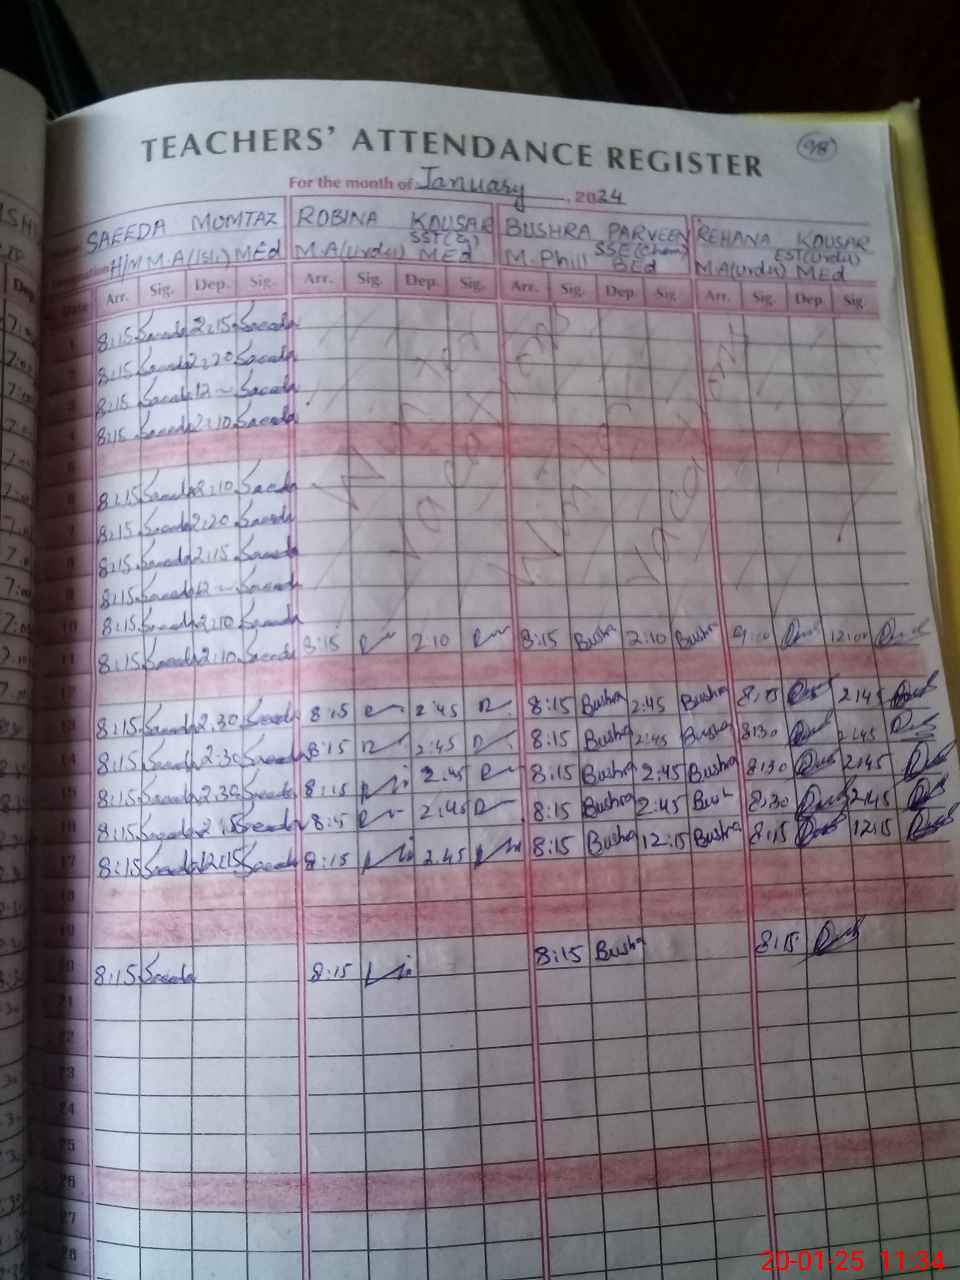 TEACHERS' ATTENDANCE REGISTER
98
For the month of January, 2024
SAEEDA MOMTAZ ROBINA KOUSAR BUSHRA PARVEEN REHANA KOUSAR
SST(G) SSE(Chem) EST(Urdu)
H/M M.A(Isl:) MEd M.A(Urdu) MEd M.Phill BEd M.A(Urdu) MEd
Arr. Sig. Dep. Sig. Arr. Sig. Dep. Sig. Arr. Sig. Dep. Sig. Arr. Sig. Dep. Sig.
8:15 Saeeda 2:15 Saeeda
8:15 Saeeda 2:20 Saeeda
8:15 Saeeda 12 Saeeda
8:15 Saeeda 2:10 Saeeda
Winter Vacation Winter Vacation
8:15 Saeeda 2:10 Saeeda
8:15 Saeeda 2:20 Saeeda
8:15 Saeeda 2:15 Saeeda
8:15 Saeeda 12 Saeeda
10 8:15 Saeeda 2:10 Saeeda
11 8:15 Saeeda 2:10 Saeeda 8:15 2:10 8:15 Bushra 2:10 Bushra 9:00 12:00
12
13 8:15 Saeeda 2.30 Saeeda 8:15 2:45 8:15 Bushra 2:45 Bushra 8:15 2:45
14 8:15 Saeeda 2:30 Saeeda 8:15 2:45 8:15 Bushra 2:45 Bushra 8:30 2:45
15 8:15 Saeeda 2.30 Saeeda 8:15 2:45 8:15 Bushra 2:45 Bushra 8:30 2:45
16 8:15 Saeeda 2:15 Saeeda 8:15 2:45 8:15 Bushra 2:45 Bush 8:30 2:45
17 8:15 Saeeda 12:15 Saeeda 8:15 2:45 8:15 Bushra 12:15 Bushra 8:15 12:15
18
19
20 8:15 Saeeda 8:15 8:15 Bushra 8:15
21
22
23
24
25
26
27
28
20-01-25 11:34